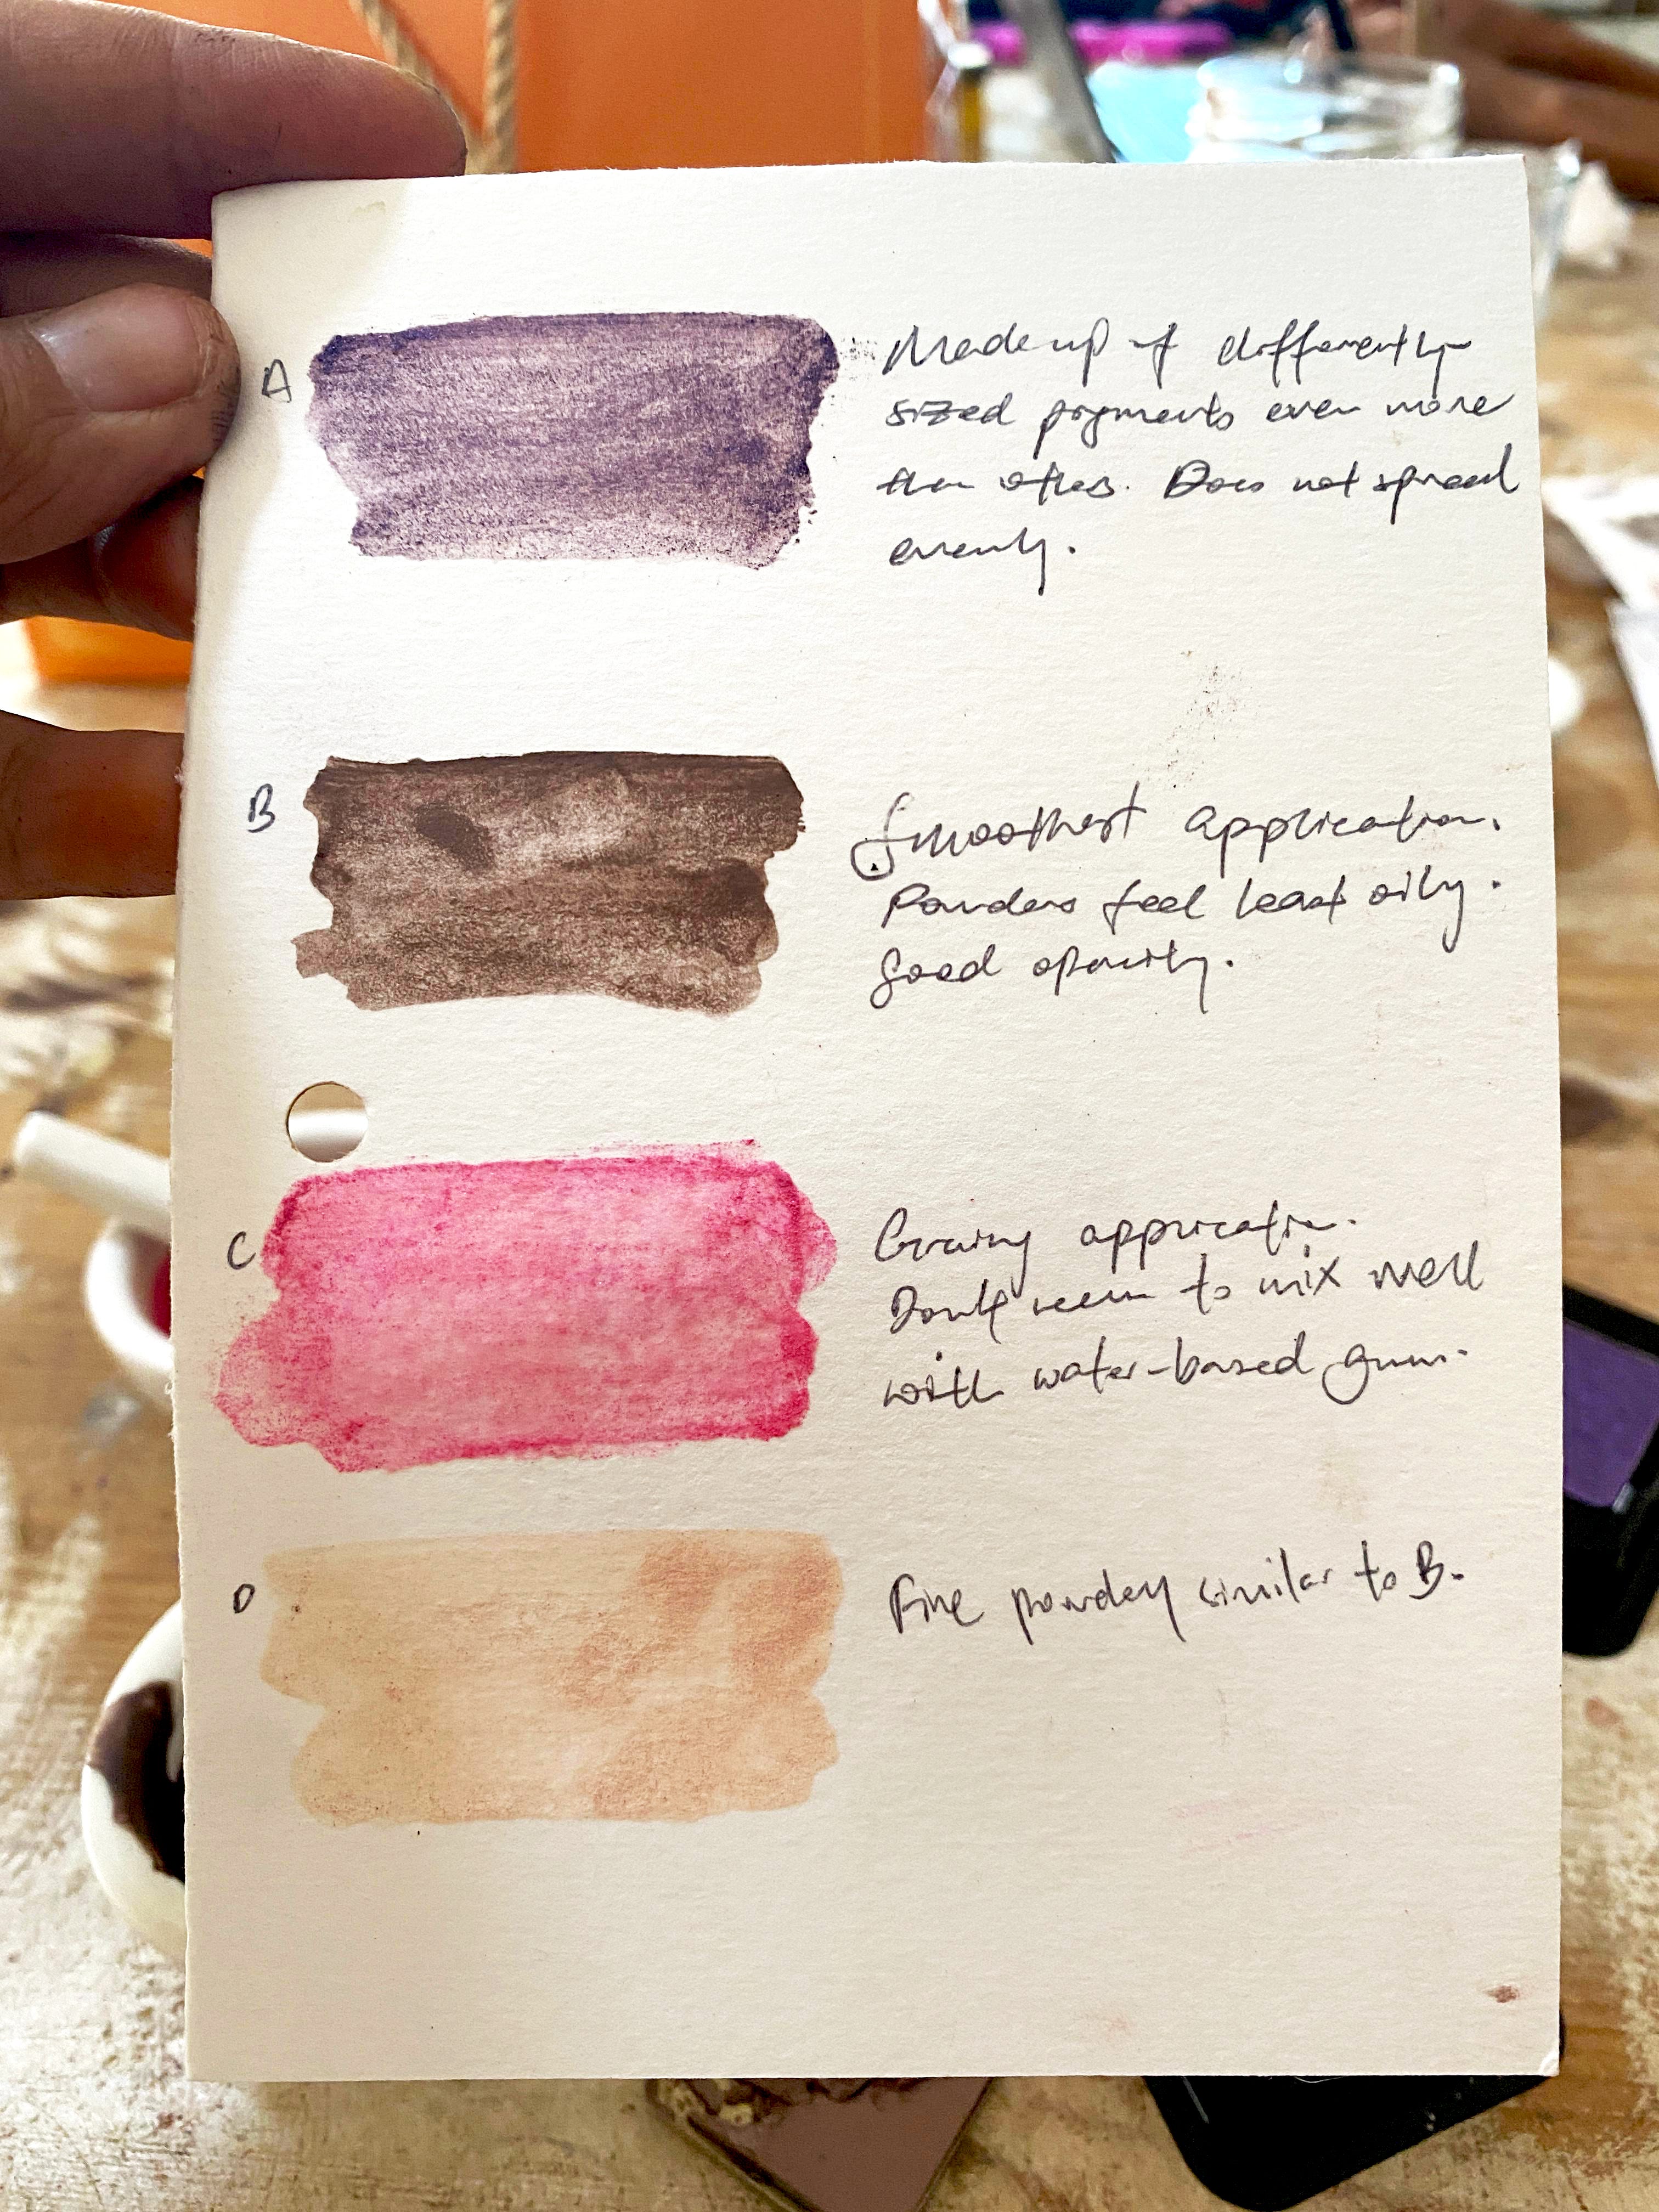 A
Made up of differently
sized pigments even more
than others. Does not spread
evenly.
B
Smoothest application.
Powders feel least oily.
Good opacity.
C
Grainy application.
Don't seem to mix well
with water-based gum.
D
Fine powdery similar to B.